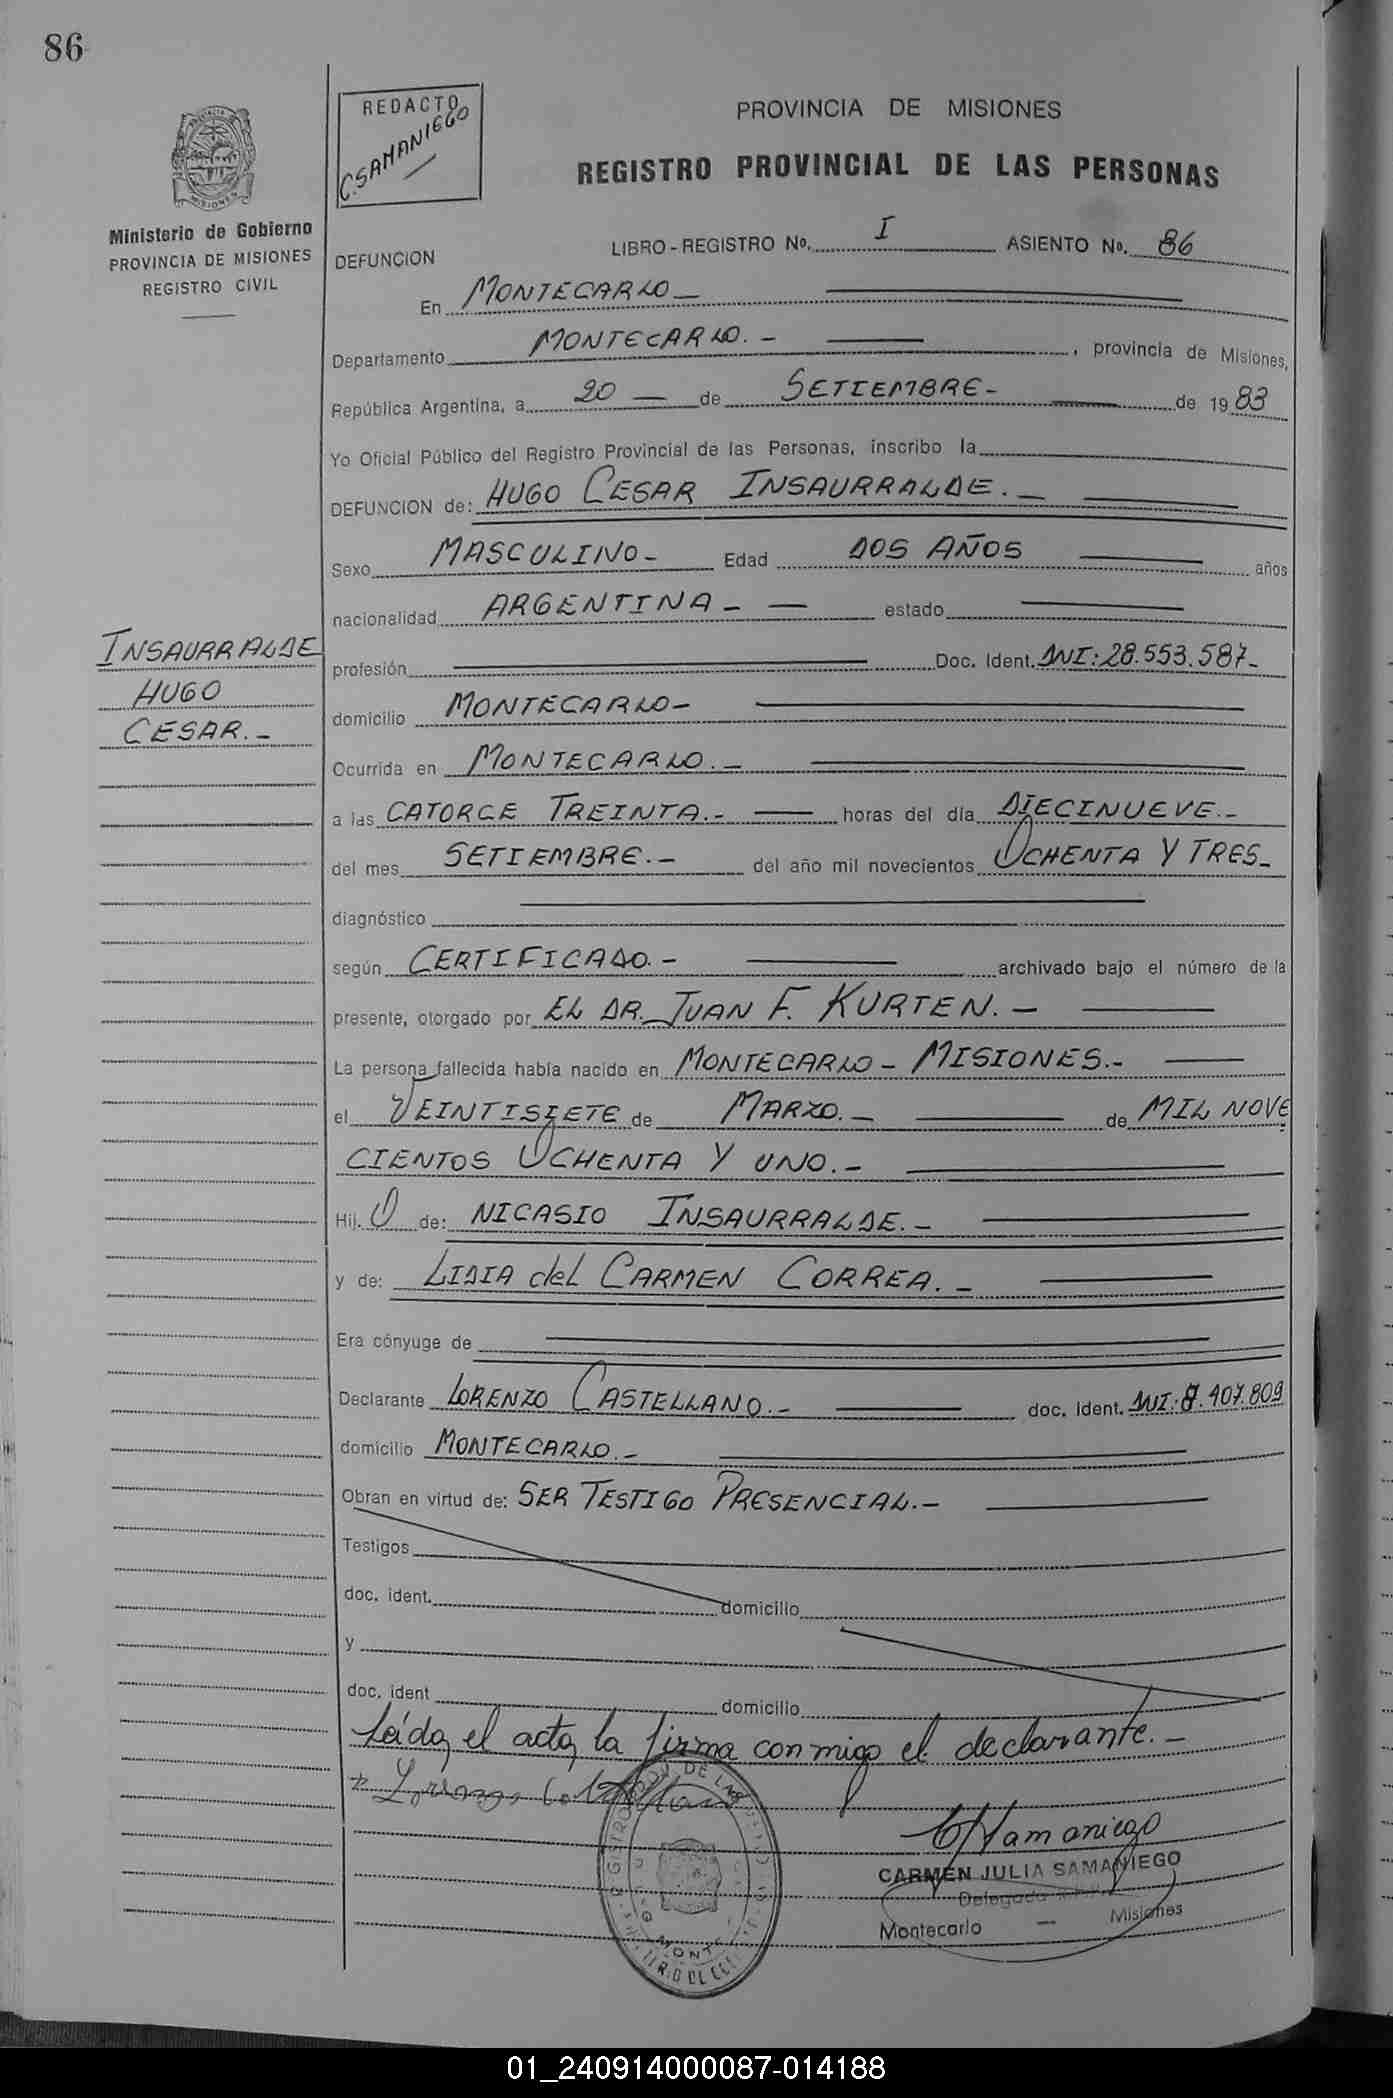 86
REDACTO
C. SAMANIEGO
PROVINCIA DE MISIONES
REGISTRO PROVINCIAL DE LAS PERSONAS
MISIONES
Ministerio de Gobierno
PROVINCIA DE MISIONES
REGISTRO CIVIL
LIBRO - REGISTRO Nº. I ASIENTO Nº. 86
DEFUNCION
En MONTECARLO —
Departamento MONTECARLO. - , provincia de Misiones,
República Argentina, a 20 — de SETIEMBRE - de 19 83
Yo Oficial Público del Registro Provincial de las Personas, inscribo la
DEFUNCION de: HUGO CESAR INSAURRALDE. —
Sexo MASCULINO - Edad DOS AÑOS años
nacionalidad ARGENTINA - — estado
INSAURRALDE
HUGO
CESAR. -
profesión Doc. Ident. DNI: 28.553.587 -
domicilio MONTECARLO -
Ocurrida en MONTECARLO. -
a las CATORCE TREINTA. - horas del día DIECINUEVE. -
del mes SETIEMBRE. - del año mil novecientos OCHENTA Y TRES -
diagnóstico
según CERTIFICADO. - archivado bajo el número de la
presente, otorgado por EL DR. JUAN F. KURTEN. —
La persona fallecida había nacido en MONTECARLO - MISIONES. -
el VEINTISIETE de MARZO. - de MIL NOVE
CIENTOS OCHENTA Y UNO. -
Hij. O de: NICASIO INSAURRALDE. -
y de: LIDIA del CARMEN CORREA. -
Era cónyuge de
Declarante LORENZO CASTELLANO. - doc. ident. DNI: 8.407.809
domicilio MONTECARLO. -
Obran en virtud de: SER TESTIGO PRESENCIAL. -
Testigos
doc. ident. domicilio
y
doc. ident domicilio
Leída el acta, la firma conmigo el declarante. -
CSamaniego
CARMEN JULIA SAMANIEGO
Delegada
Montecarlo — Misiones
01_240914000087-014188